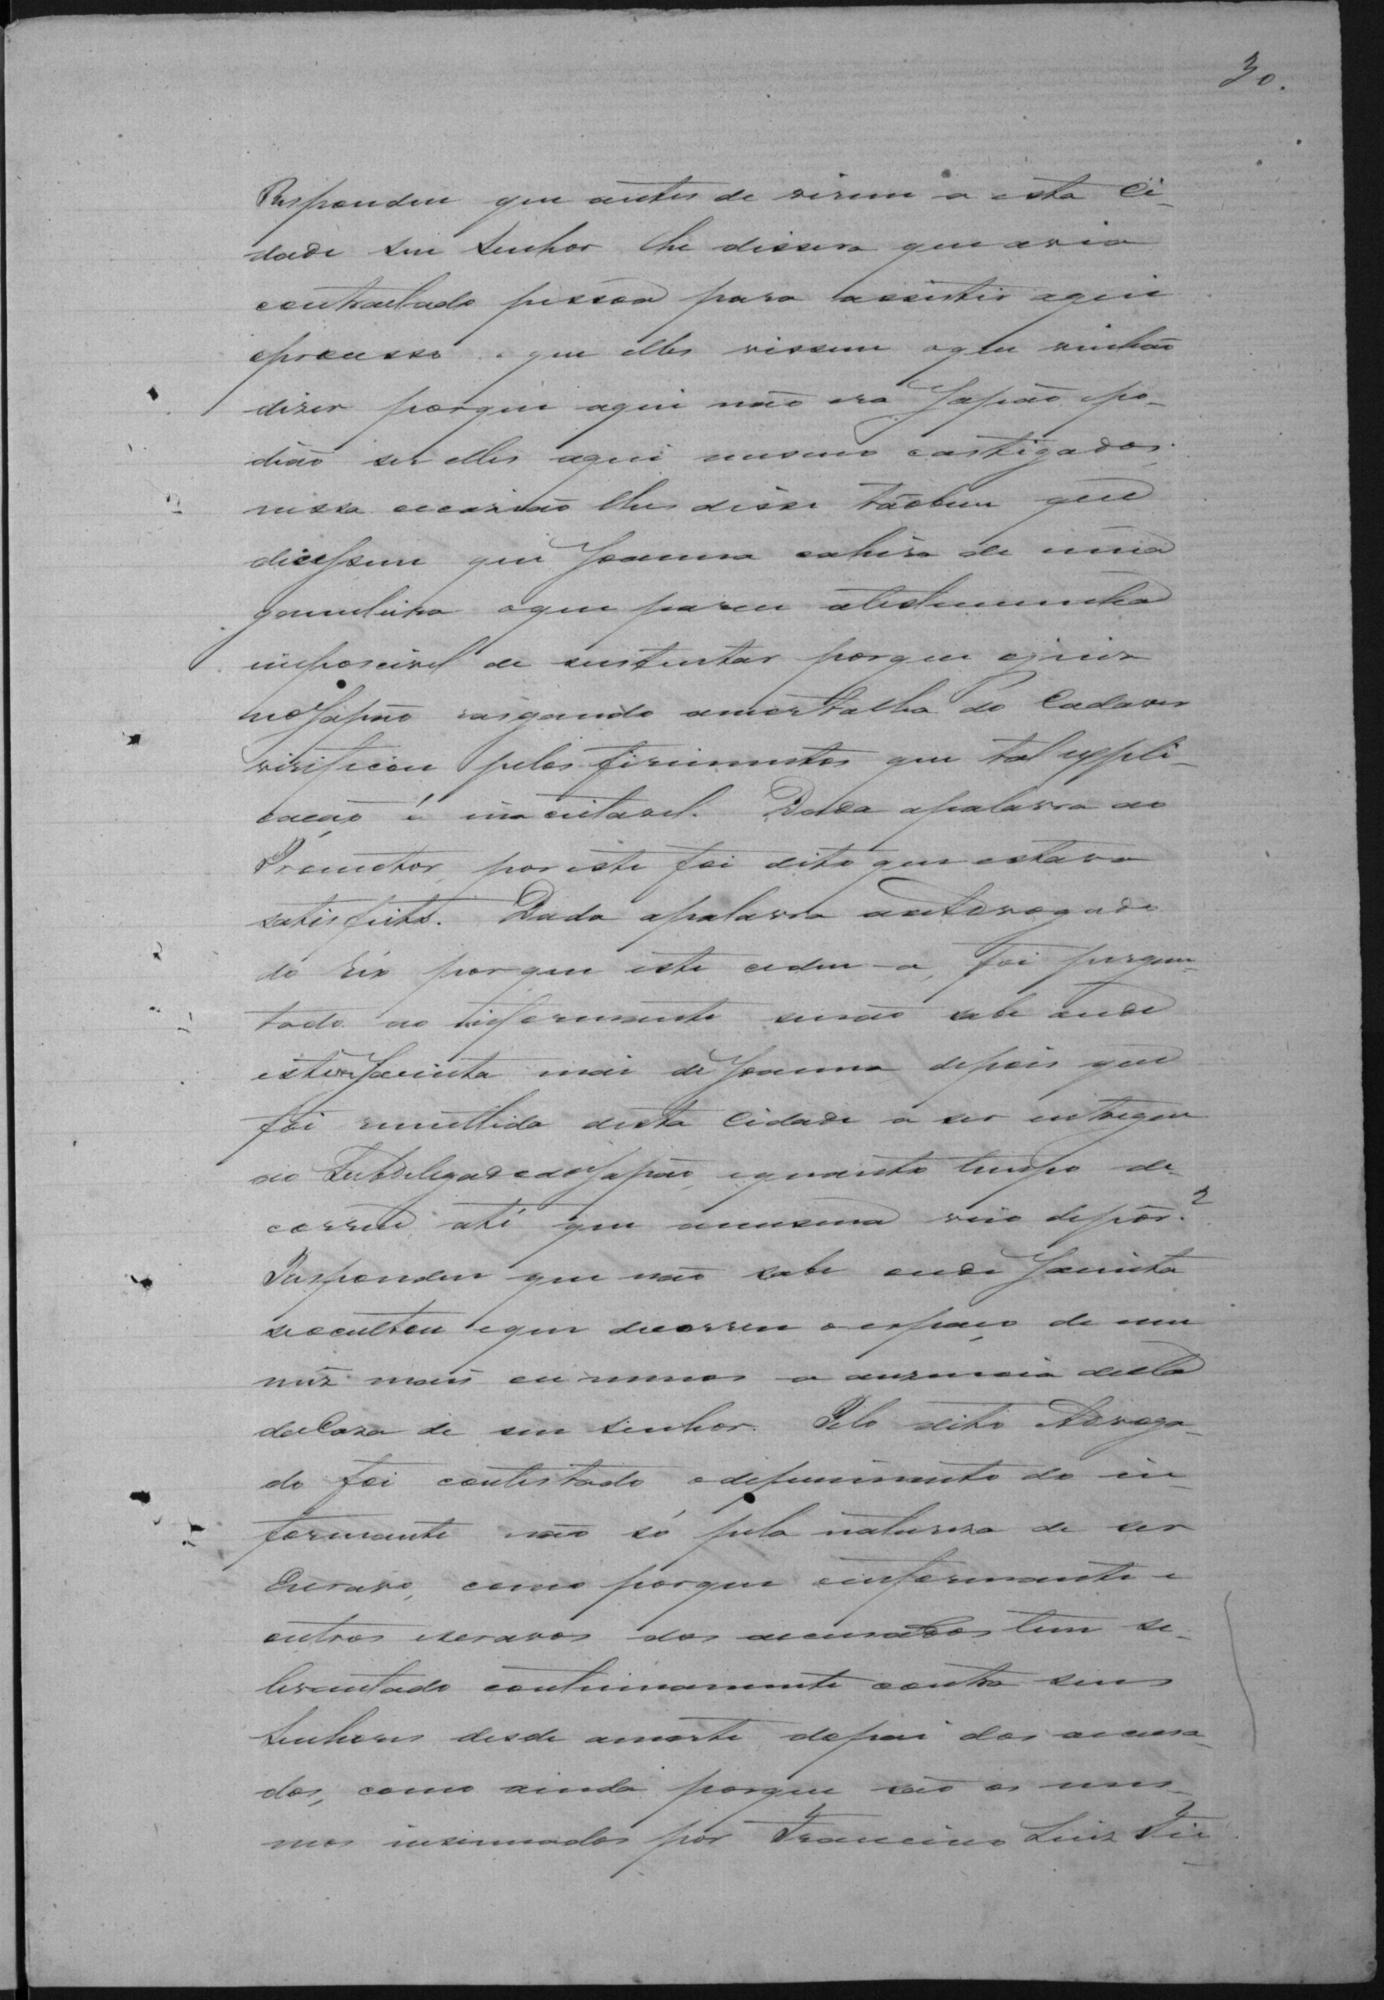 30.
Respondeu que antes de virem a esta Ci-
dade seu Senhor lhe dissera que avia
contractado pessoa para assistir aqui
oprocesso e que elles vissem oque vinhão
dizer porque aqui não era Japão e po-
dião ser elles aqui mesmo castigados;
nessa occasião lhes disse tãobem que
dicessem que Joanna cahira de uma
gamelleira oque parece atestemunha
impossivel de sustentar porque
no Japão rasgando amortalha do Cadaver
virificou pelos firimentos que tal expli-
cação é inaceitavel. Dada apalavra ao
Promotor, por este foi dito que estava
satisfeito. Dada apalavra aoAdvogado
do Réo porque este cedeu-a, foi pergun-
tado ao informante senão sabe onde
esteve Jacinta mai de Joanna depois que
foi remettida desta Cidade a ser entregue
ao Subdelegado do Japão, equanto tempo de-
correu até que amesma veio depôr?
Respondeu que não sabe onde Jacinta
seocultou eque decorreu o espaço de um
mêz mais ou menos a auzencia della
da Caza de seu Senhor. Pelo dito Advoga-
do foi contestado odepoimento do in-
formante não só pela natureza de ser
Escravo, como porque oinformante e
outros escravos dos accusados tem se
levantado continuamente contra seus
Senhores desde amorte dopai dos accusa-
dos, como ainda porque são os mes-
mos insinuados por Francisco Luiz